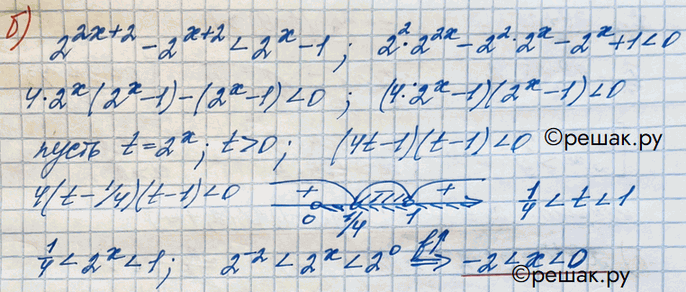 б)
2^{2x+2} - 2^{x+2} < 2^x - 1 ; 2^2·2^{2x} - 2^2·2^x - 2^x + 1 < 0
4·2^x(2^x - 1) - (2^x - 1) < 0 ; (4·2^x - 1)(2^x - 1) < 0
пусть t = 2^x ; t > 0 ; (4t - 1)(t - 1) < 0
©решак.ру
4(t - 1/4)(t - 1) < 0 + - + 0 1/4 1 1/4 < t < 1
1/4 < 2^x < 1 ; 2^{-2} < 2^x < 2^0 f↑ ⟹ -2 < x < 0
©решак.ру